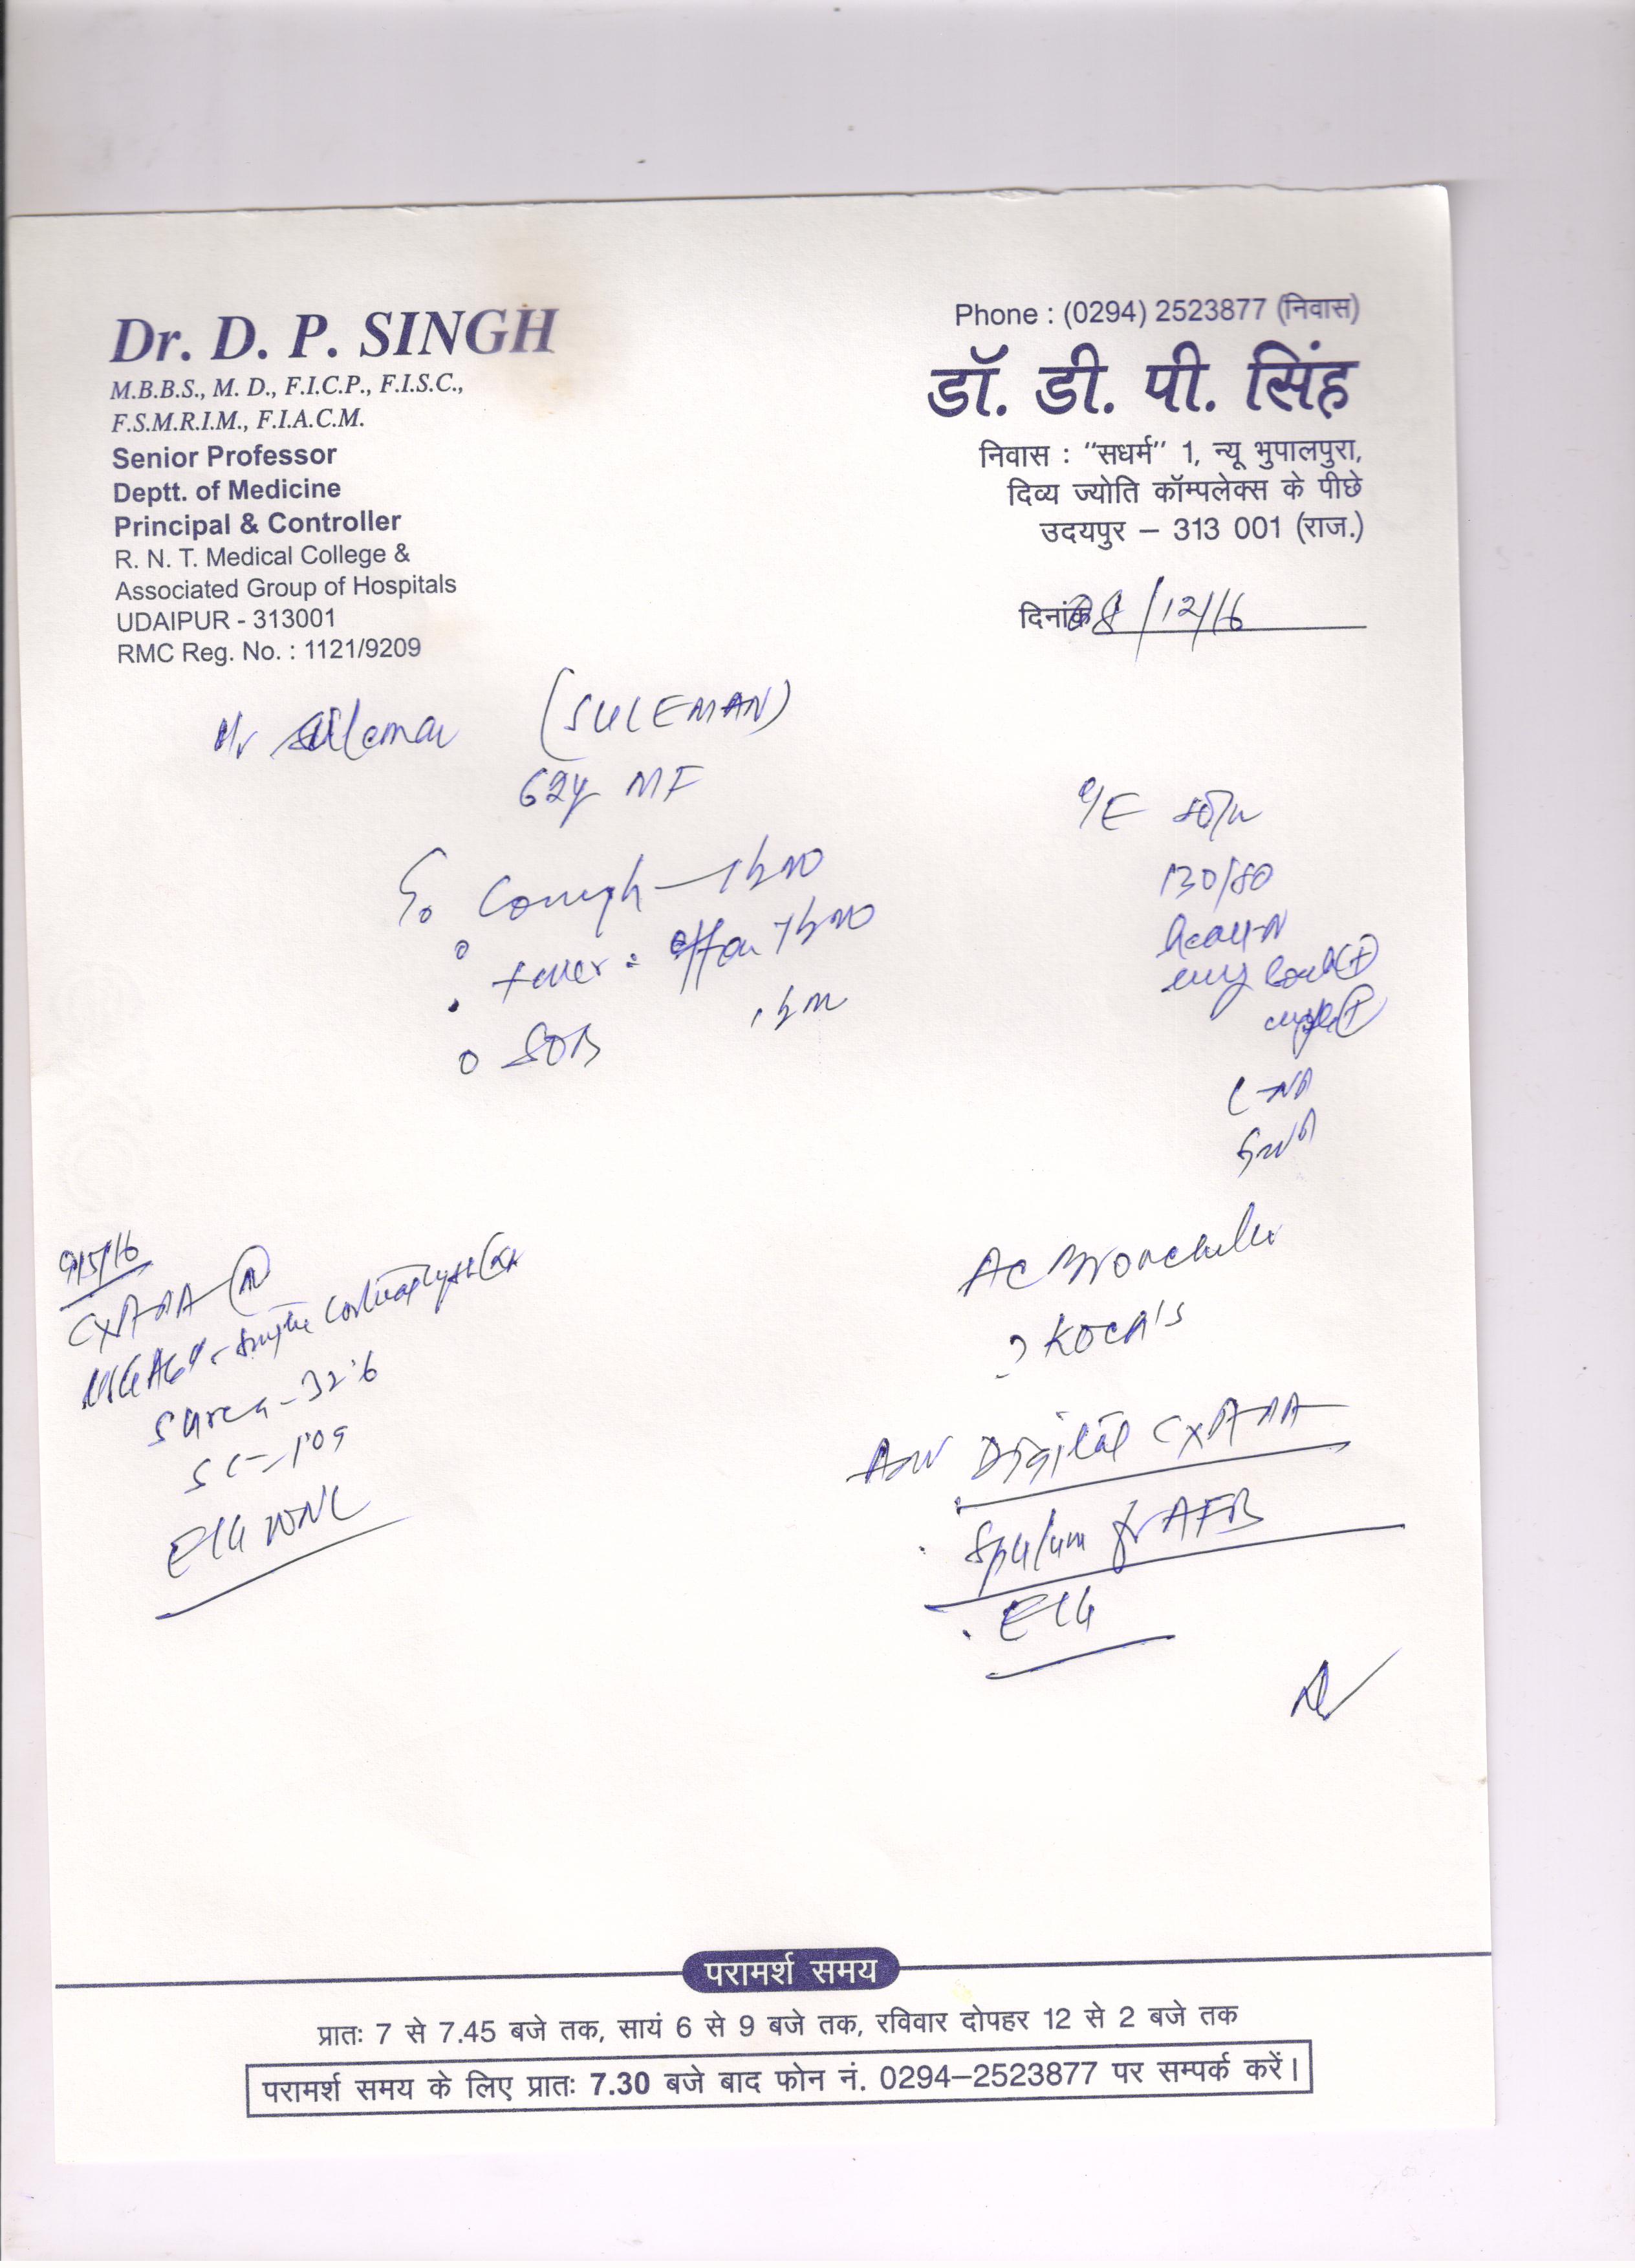 Dr. D. P. SINGH
M.B.B.S., M. D., F.I.C.P., F.I.S.C.,
F.S.M.R.I.M., F.I.A.C.M.
Senior Professor
Deptt. of Medicine
Principal & Controller
R. N. T. Medical College &
Associated Group of Hospitals
UDAIPUR - 313001
RMC Reg. No. : 1121/9209
Phone : (0294) 2523877 (निवास)
डॉ. डी. पी. सिंह
निवास : "सधर्म" 1, न्यू भुपालपुरा,
दिव्य ज्योति कॉम्पलेक्स के पीछे
उदयपुर – 313 001 (राज.)
दिनांक 8/12/16
Mr Suleman (SULEMAN)
62y MF
Cough
Fever
SOB
O/E
130/80
Ac Bronchitis
? KOCH'S
Adv Digital CxR PA
Sputum for AFB
ECG
9/5/16
CxR PA (N)
S Urea - 32.6
SC - 1.09
ECG WNL
परामर्श समय
प्रातः 7 से 7.45 बजे तक, सायं 6 से 9 बजे तक, रविवार दोपहर 12 से 2 बजे तक
परामर्श समय के लिए प्रातः 7.30 बजे बाद फोन नं. 0294–2523877 पर सम्पर्क करें।